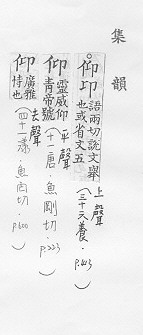 集韻
仰卬 語兩切說文舉也或省文五 上聲（三十六養‧p.413）
仰 靈威仰青帝號 平聲（十一唐‧魚剛切‧p.223）
仰 廣雅恃也 去聲（四十二宕‧魚向切‧p.600）